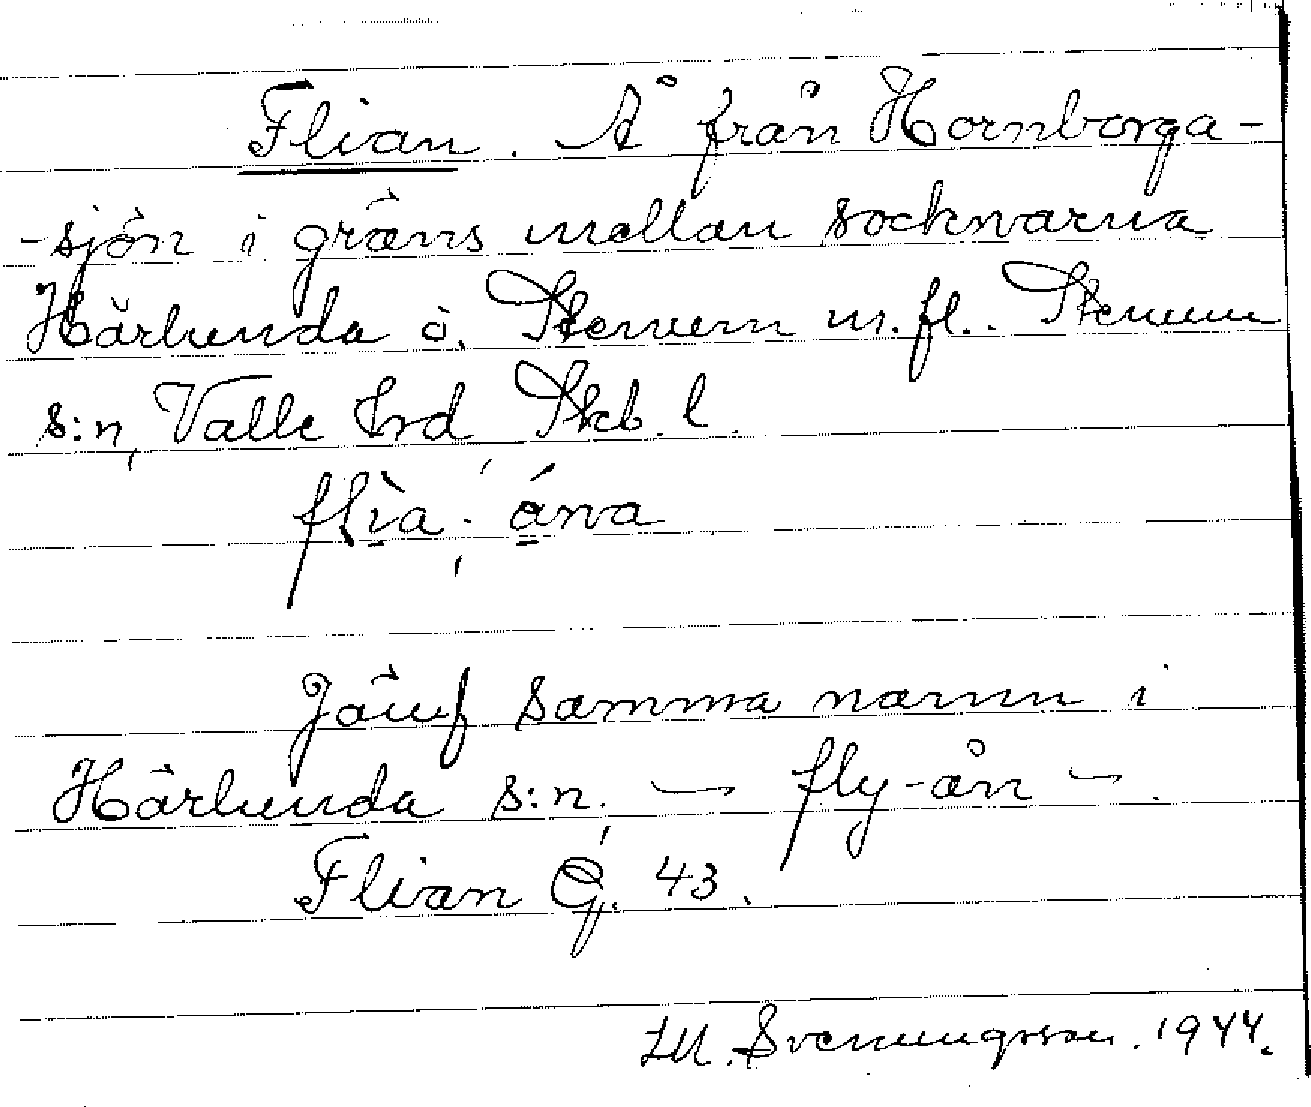 Flian. Å från Hornborga-
-sjön i gräns mellan socknarna
Härlunda o. Stenum m.fl.. Stenum
s:n, Valle hrd, Skb. l.
flìa; ánʋa
Jämf samma namn i
Härlunda s:n; — fly-ån —.
Flian G. 43.
M. Svenungsson. 1944.